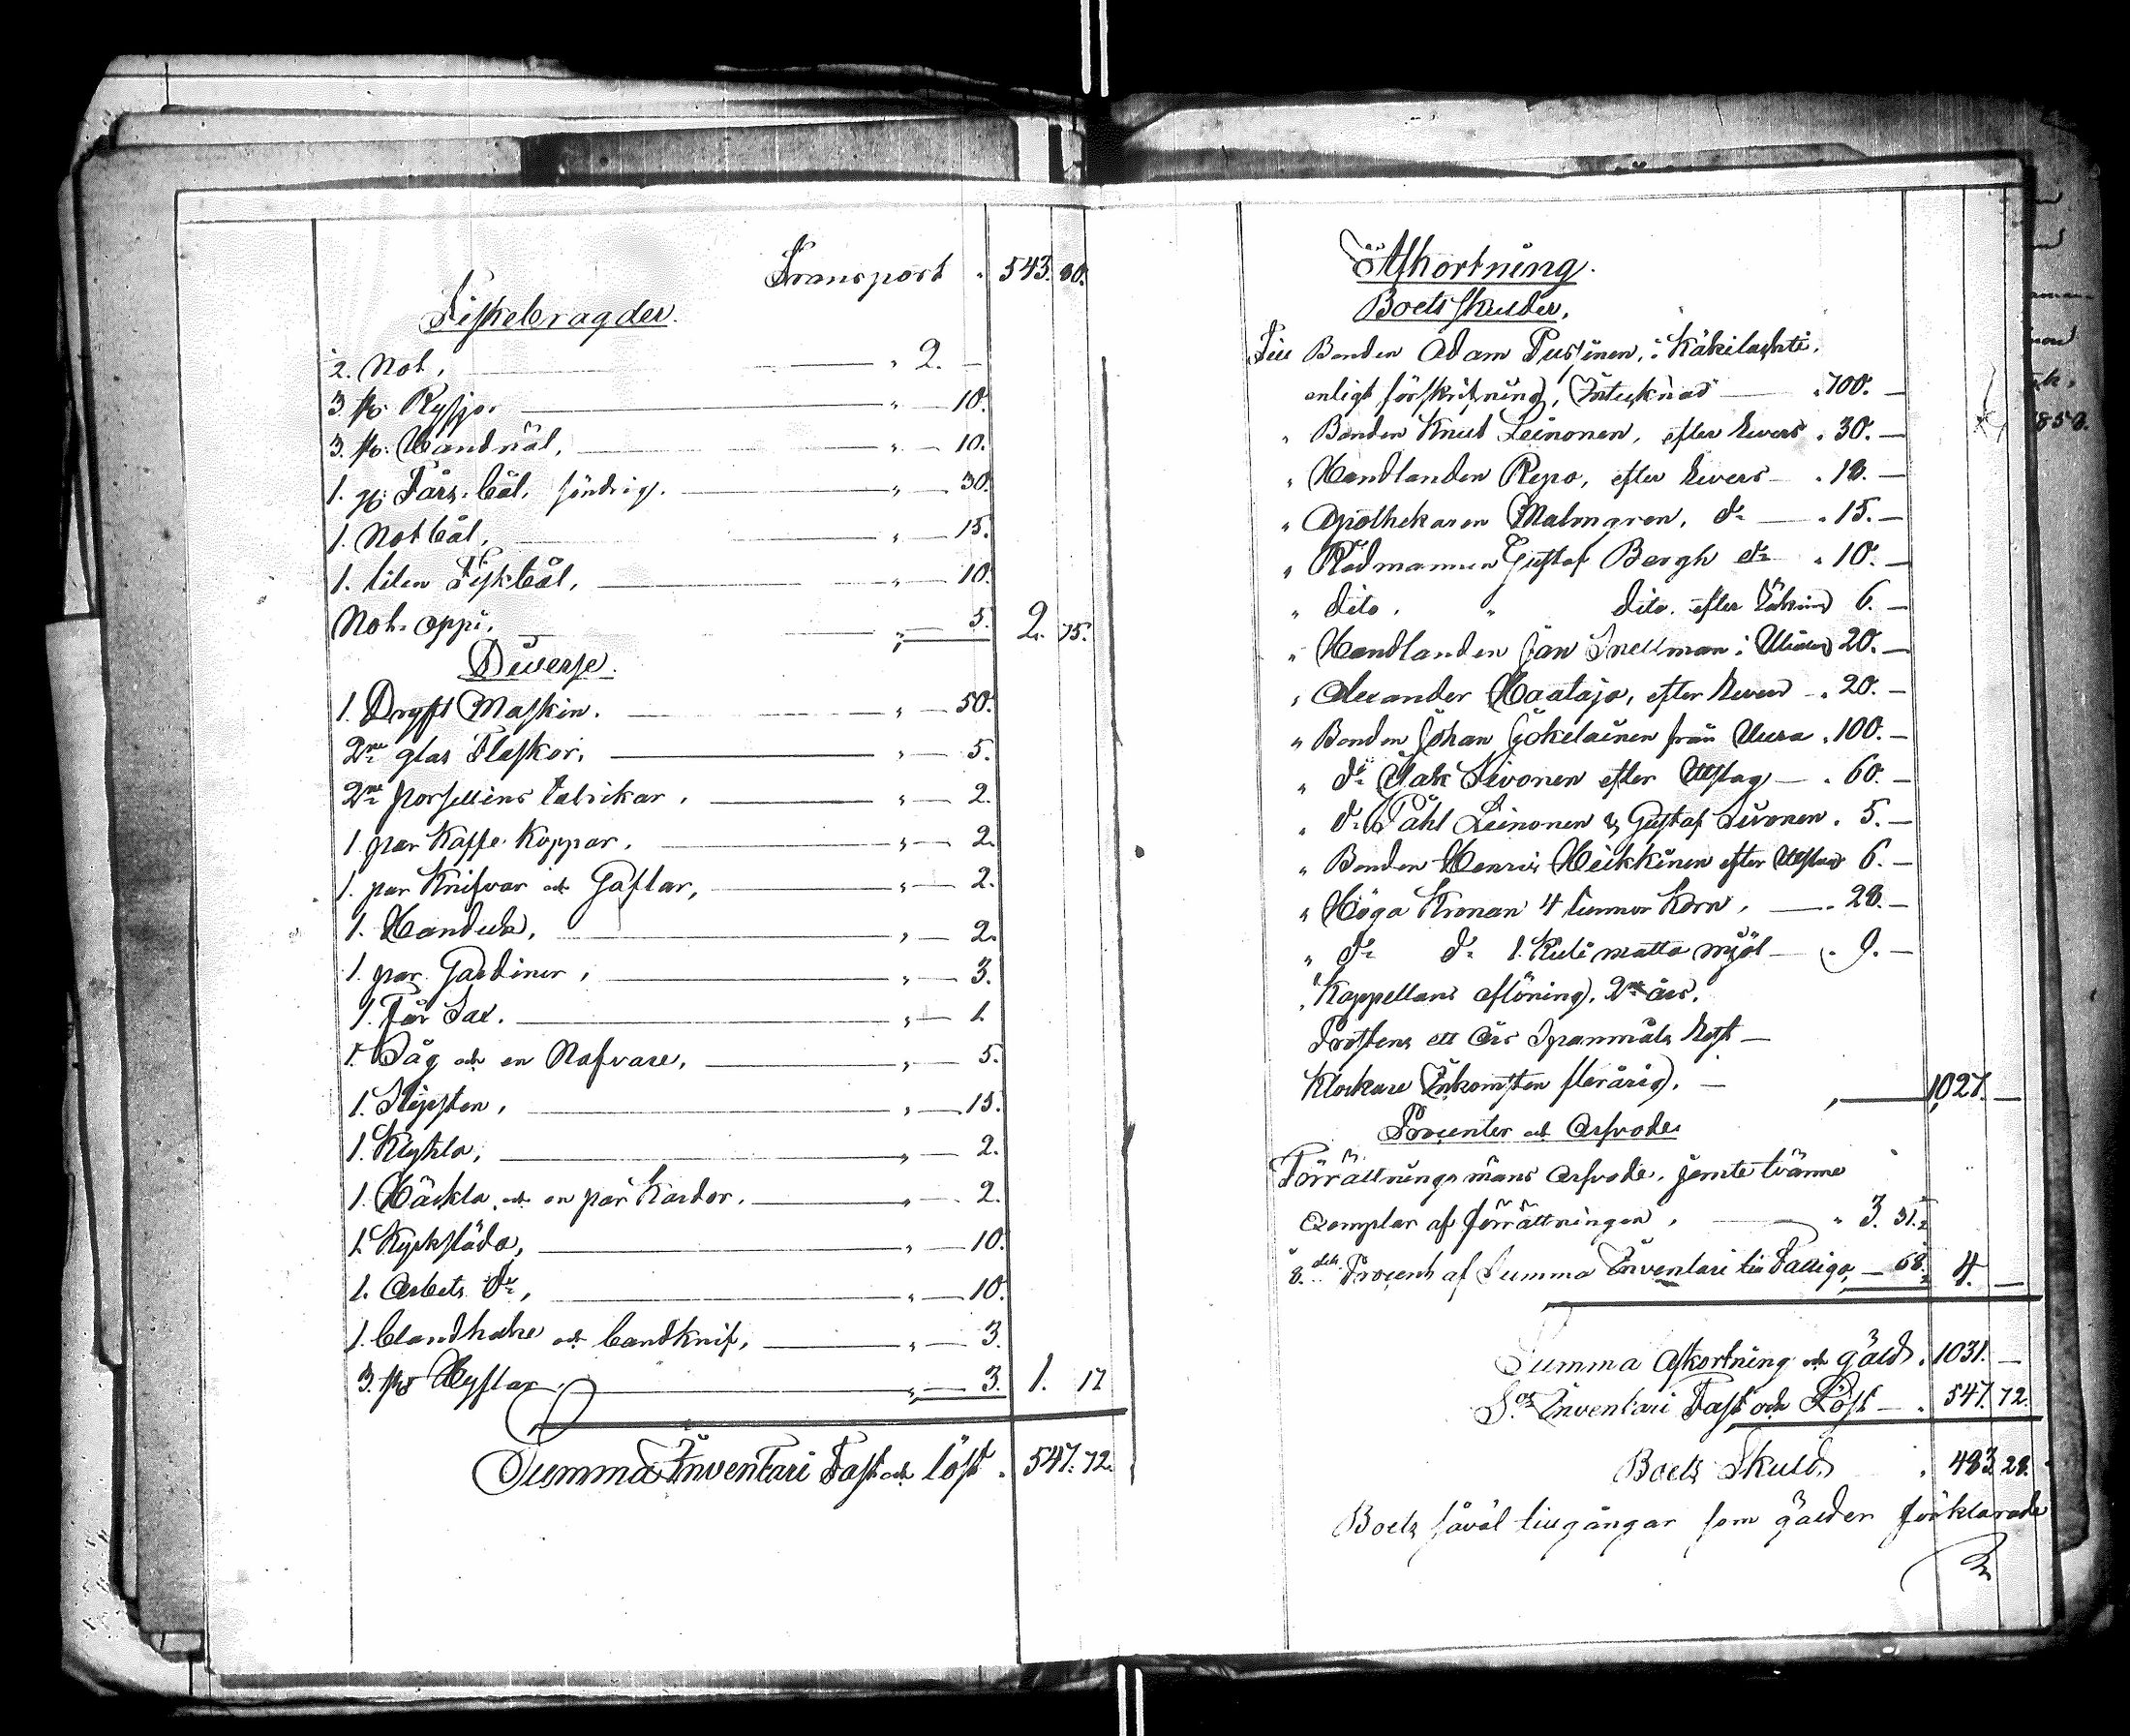 Transport „ 543. 80.
Fiskebragder.
2. Not, „ 2. —
3. st: Rysjor „ — 10.
3. st: Landnät, „ — 10.
1. gl: Färs. båt, söndrig. „ — 30.
1. Notbåt, „ — 15.
1. liten Fiskbåt, „ — 10.
Not. oppi, „ — 5. 2. 75.
Diverse.
1. Dryft Maskin. „ — 50.
2ne glas Flaskor, „ — 5.
2ne porsellins talrikar, „ — 2.
1. par Kaffe Koppar. „ — 2.
1. par Knifvar och Gaflar, „ — 2.
1. Handuk, „ — 2.
1. par Gardiner, „ — 3.
1. Får Sax. „ — 1.
1. Såg och en Nafvare, „ — 5.
1. Slipsten, „ — 15.
1. Klykta, „ — 2.
1. Häckla och en par Kardor. „ — 2.
1. Kyrksläda, „ — 10.
1. Arbets do, „ — 10.
1. bandhake och bandknif, „ — 3.
3. st: Hyflar „ — 3. 1. 17
Summa Inventari Fast och löst „ 547. 72.
Afkortning.
Boets skulder.
Till Bonden Adam Pussinen, i Käkilachti,
enligt förskrifning, Intecknad „ 700. —
„ Bonden Knut Leinonen, efter Revers „ 30. —
„ Handlanden Repo, efter Revers „ 18. —
„ Apothekaren Malmgren, do „ 15. —
„ Rådmannen Gustaf Bergh do „ 10. —
„ dito, „ dito. efter Räkning 6. —
„ Handlanden Jan Snellman i Uleåborg 20. —
„ Alexander Haataja, efter Revers „ 20. —
„ Bonden Johan Jokelainen från Uura „ 100. —
„ do Isak Sivonen efter Utslag „ 60. —
„ do Påhl Leinonen & Gustaf Sivonen „ 5. —
„ Bonden Henric Heikkinen efter Utslag 6. —
„ Höga Kronan 4 tunnor Korn, „ 28. —
„ do do 1. Kuli matta mjöl „ 9. —
„ Kappellans aflöning, 2ne års,
Prostens ett års Spanmåls Rest —
Klockare Inkomsten flerårig, — „ 1,027. —
Procenter och Arfvode
Förrättnings mäns arfvode, jemte tvänne
Exemplar af förrättningen, „ 3. 31½
⅛dels Procent af Summa Inventari till Fattiga, — 68½ 4. —
Summa Afkortning och gäld „ 1031. —
Sa Inventari Fast och Löst — „ 547. 72.
Boets Skuld „ 483. 28.
Boets såväl tillgångar som gälden förklarade